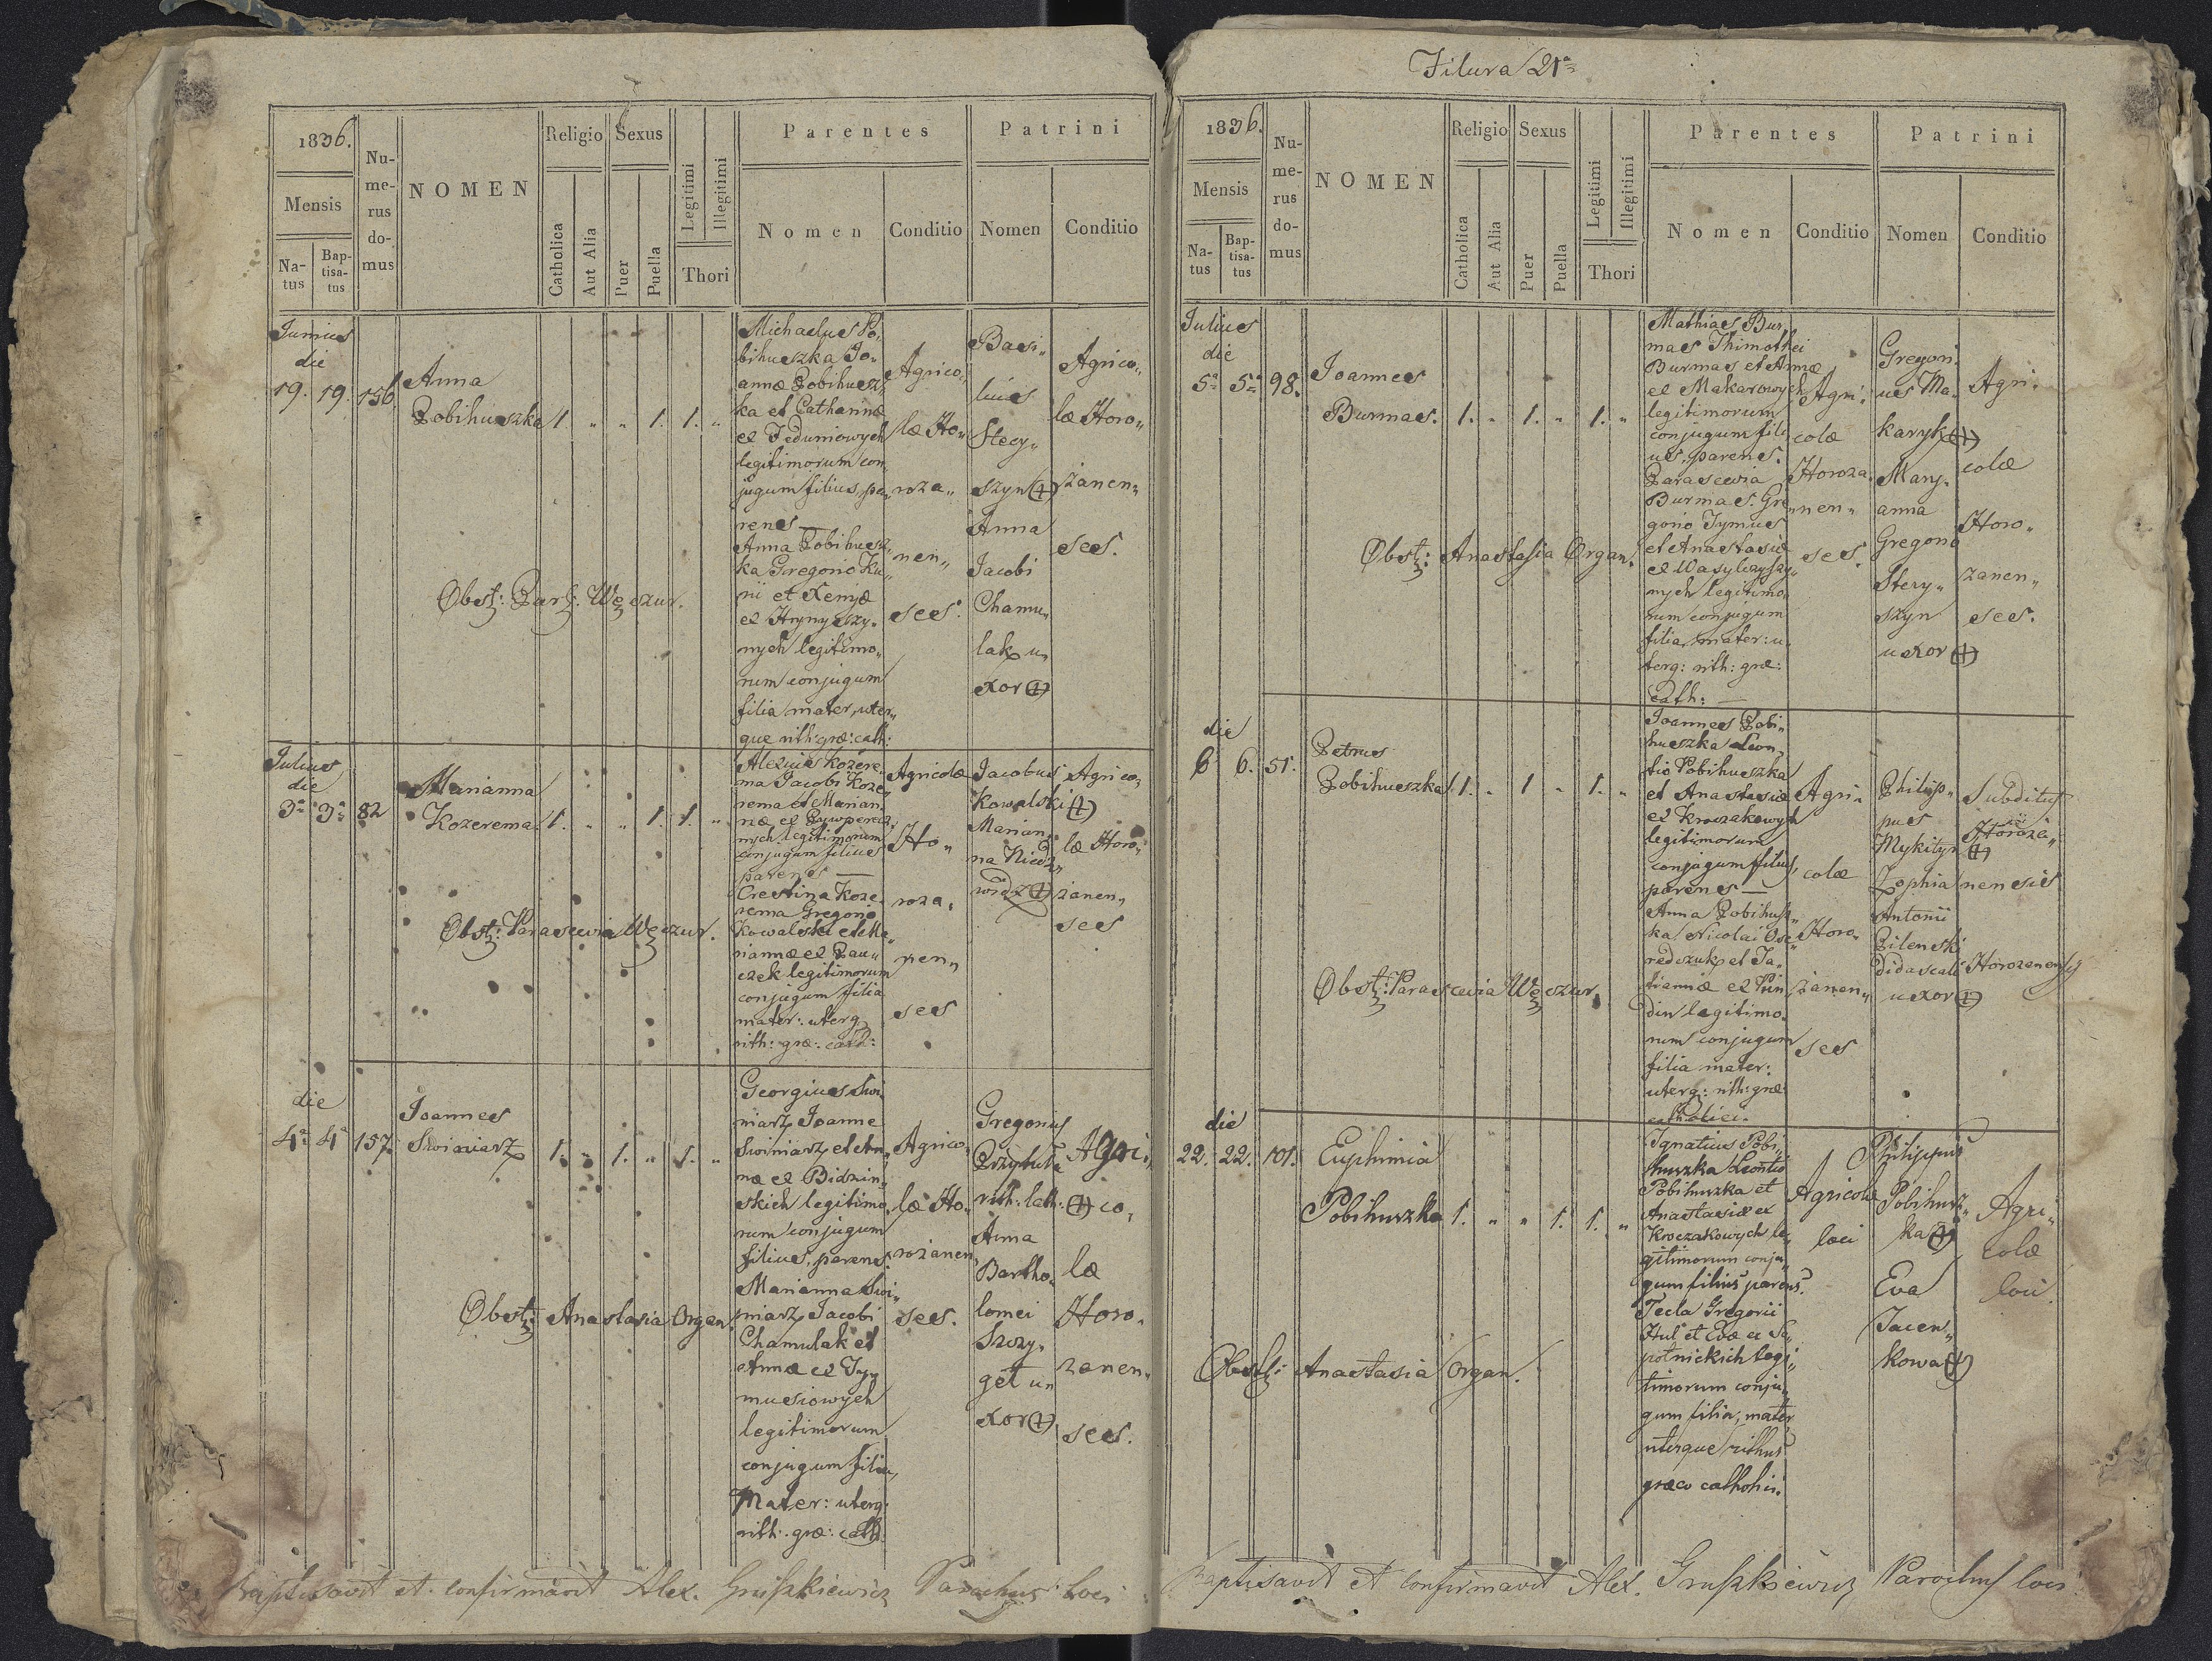 1836.
Mensis
Na-
tus
Bap-
tisa-
tus
Nu-
me-
rus
do-
mus
NOMEN
Religio
Catholica
Aut Alia
Sexus
Puer
Puella
Legitimi
Illegitimi
Thori
Parentes
Nomen
Conditio
Patrini
Nomen
Conditio
Junius
die
19. 19. 156
Anna
Pobihuszka 1. " " 1. 1. "
Obst: Par: Węczur.
Michaelus Po,
bihuszka Jo,
annæ Pobihusz,
ka et Catharinæ
ex Feduniowych
legitimorum con,
jugum filius, pa,
rens —
Anna Pobihusz,
ka Gregorio Ku,
nii et Xenyæ
ex Hrynyszy,
nych legitimo,
rum conjugum
filia mater, uter,
que rith: græ: cath:
Agrico,
læ Ho,
roza,
nen,
ses.
Basi,
lius
Stecy,
szyn (+)
Anna
Jacobi
Chamu,
lak u,
xor (+)
Agrico,
læ Horo,
żanen,
ses.
Julius
die
3a 3a 82
Marianna
Kozerema. 1. " " 1. 1. "
Obst: Parascevia Węczur.
Alexius Kozere,
ma Jacobi Koze,
rema et Marian,
næ ex
nych legitimorum
conjugum filius
parens —
Crestina Koze,
rema Gregorio
Kowalski et Ma,
riannæ ex Pau,
czek legitimorum
conjugum filia
mater: uterq
rith: græ: cath:
Agricolæ
Ho,
roza,
nen,
ses
Jacobus
Kowalski (+)
Marian,
na Niedz,
widz (+)
Agrico,
læ Horo,
żanen,
ses
die
4a 4a 157.
Joannes
Swiniarz 1. " 1. " 1. "
Obst: Anastasia Organ.
Georgius Swi,
niarz Joanne
Swiniarz et An,
næ ex Bidzin,
skich legitimo,
rum conjugum
filius, parens.
Marianna Swi,
niarz Jacobi
Chamulak et
Annæ ex Ty,
musiowych
legitimorum
conjugum filia,
Mater: uterq:
rith: græ: cath:
Agrico,
læ Ho,
rożanen,
ses.
Gregorius
Przytuła
rith: lath: (+)
Anna
Bartho,
lomei
Szczy,
get u,
xor (+)
Agri,
co,
læ
Horo,
zanen,
ses.
Baptisavit et confirmavit Alex. Gruszkiewicz Parochus Loci
Filura 21a
1836.
Mensis
Na-
tus
Bap-
tisa-
tus
Nu-
me-
rus
do-
mus
NOMEN
Religio
Catholica
Aut Alia
Sexus
Puer
Puella
Legitimi
Illegitimi
Thori
Parentes
Nomen
Conditio
Patrini
Nomen
Conditio
Julius
die
5a 5a 98.
Joannes
Burmas. 1. " 1. " 1. "
Obst: Anastasia Organ.
Mathias Bur,
mas Thimothei
Burmas et Annæ
ex Makarowych
legitimorum
conjugum fili
us, parens.
Parascevia
Burmas Gre,
gorio Tymus
et Anastasiæ
ex
nych legitimo,
rum conjugum
filia, mater: u,
terq: rith: græ:
Cath: —
Agri,
colæ
Horoza,
nen,
ses.
Gregori,
us Ma,
karyk (+)
Mary,
anna
Gregorio
Stery,
szyn
uxor (+)
Agri,
colæ
Horo,
zanen,
ses.
die
6 6. 51.
Petrus
Pobihuszka 1. " 1 " 1. "
Obst: Parascevia Węczur.
Joannes Pobi,
huszka Leon,
tio Pobihuszka
et Anastasiæ
ex Kroczakowych
legitimorum
conjugum filius,
parens —
Anna Pobihusz,
ka Nicolai Ose,
redczuk et Ta,
tiannæ ex Pun
din legitimo,
rum conjugum
filia mater:
uterq: rith: græ:
catholici.
Agri,
colæ
Horo,
żanen,
ses
Philip,
pus
Mykityn (+)
Zophia
Antonii
Bilenski
didascali
uxor (+)
Subditus
Horoza,
nensis
Horozanensis
die
22. 22. 101.
Euphimia
Pobihuszka 1. " " 1. 1. "
Obst: Anastasia Organ.
Ignatius Pobi,
huszka Leontio
Pobihuszka et
Anastasiæ ex
Kroczakowych le,
gitimorum conju,
gum filius parens.
Tecla Gregorii
Hul et Evæ ex Sa,
potnickich legi,
timorum conju,
gum filia, mater,
uterque rithus
græco catholici.
Agricolæ
loci
Philippus
Pobihusz,
ka (+)
Eva
Jacen,
kowa (+)
Agri,
colæ
loci.
Baptisavit et confirmavit Alex. Gruszkiewicz, Parochus loci